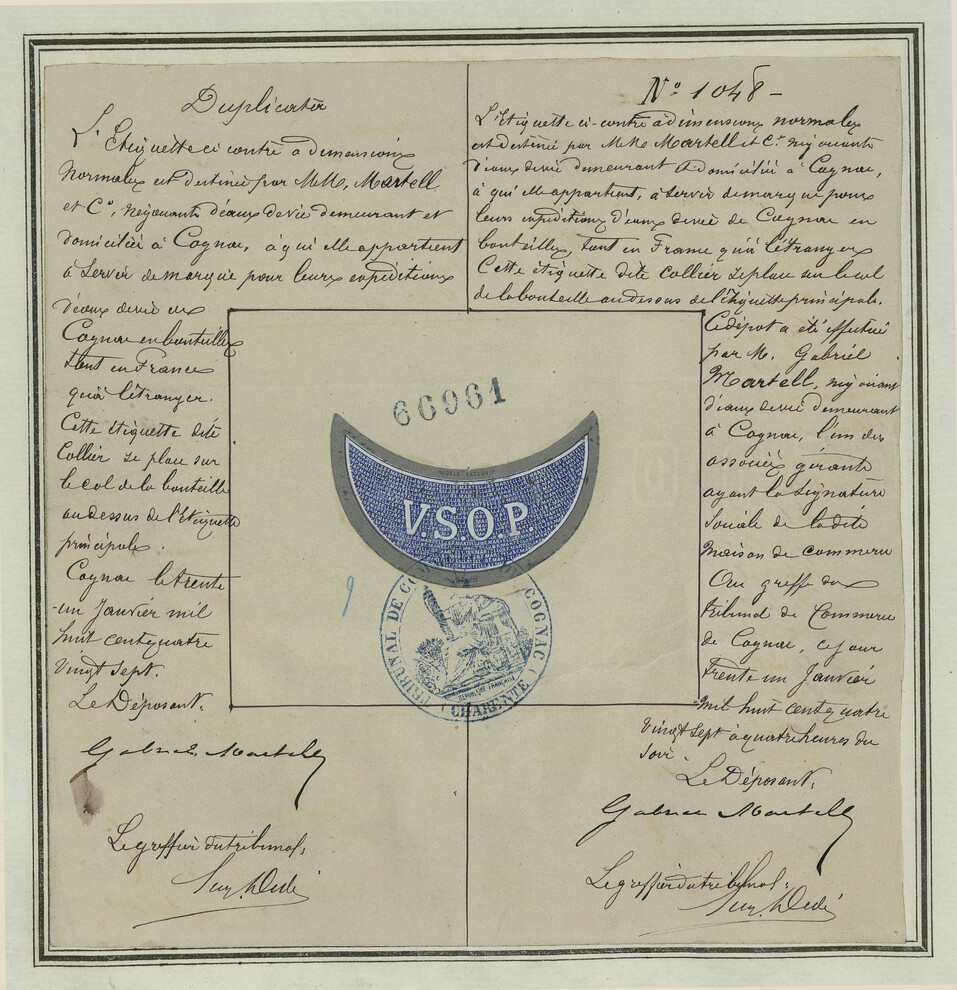 Duplicata
L'Etiquette ci contre a dimensions
normales est destinée par M.M. Martell
et Cⁱᵉ, négociants d'eaux de vie demeurant et
domiciliés à Cognac, à qui elle appartient
à servir de marque pour leurs expéditions
d'eaux de vie de
Cognac en bouteilles
tant en France
qu'à l'étranger.
Cette étiquette dite
Collier se place sur
le col de la bouteille
au dessus de l'Etiquette
principale.
Cognac le trente
un Janvier mil
huit cent quatre
vingt sept.
Le Déposant,
Gabriel Martell
Le greffier du tribunal,
Nº 1048
L'Etiquette ci-contre à dimensions normales
est destinée par M.M. Martell et Cⁱᵉ négociants
d'eaux de vie demeurant & domiciliés à Cognac,
à qui elle appartient, à servir de marque pour
leurs expéditions d'eaux de vie de Cognac en
bouteilles, tant en France qu'à l'étranger
Cette étiquette dite Collier se place sur le col
de la bouteille au dessus de l'étiquette principale.
Ce dépot a été effectué
par M. Gabriel
Martell, négociant
d'eaux de vie demeurant
à Cognac, l'un des
associés gérants
ayant la signature
sociale de la dite
maison de commerce
Au greffe du
tribunal de Commerce
de Cognac, ce jour
trente un Janvier
mil huit cent quatre
vingt sept à quatre heures du
soir.
Le Déposant,
Gabriel Martell
Le greffier du tribunal,
66961
MODÈLE EXCLUSIF
V.S.O.P.
9
TRIBUNAL DE COMMERCE DE COGNAC
RÉPUBLIQUE FRANÇAISE
(CHARENTE)